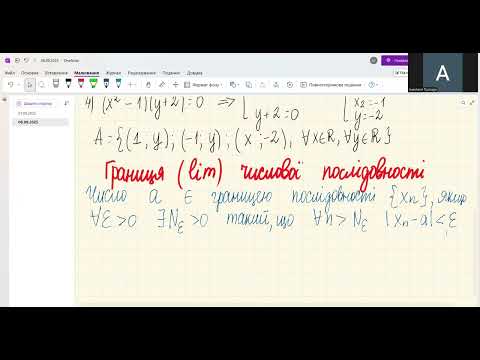 08.09.2023 - OneNote
Файл Основне Вставлення Малювання Рецензування Подання Довідка
Формат фону
Повноекранне малювання
Додати сторінку
07.09.2023
08.09.2023
A
4) (x² - 1)(y+2)=0 ⟹ [ x₂=-1
y+2=0 y=-2
A = {(1; y); (-1; y); (x; -2), ∀x∈R, ∀y∈R}
Границя (lim) числової послідовності
Число a є границею послідовності {xₙ}, якщо
∀ε>0 ∃Nε>0 такий, що ∀n>Nε |xₙ-a|<ε